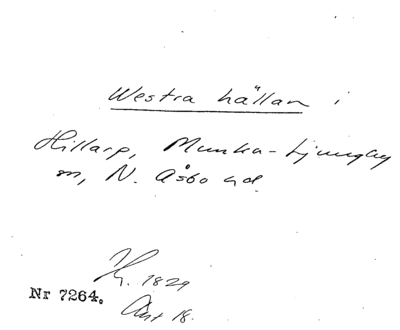 Westra hällan i
Hillarp, Munka-Ljungby
sn, N. Åsbo hd.
H. 1829
Nr 7264.
Akt 18.